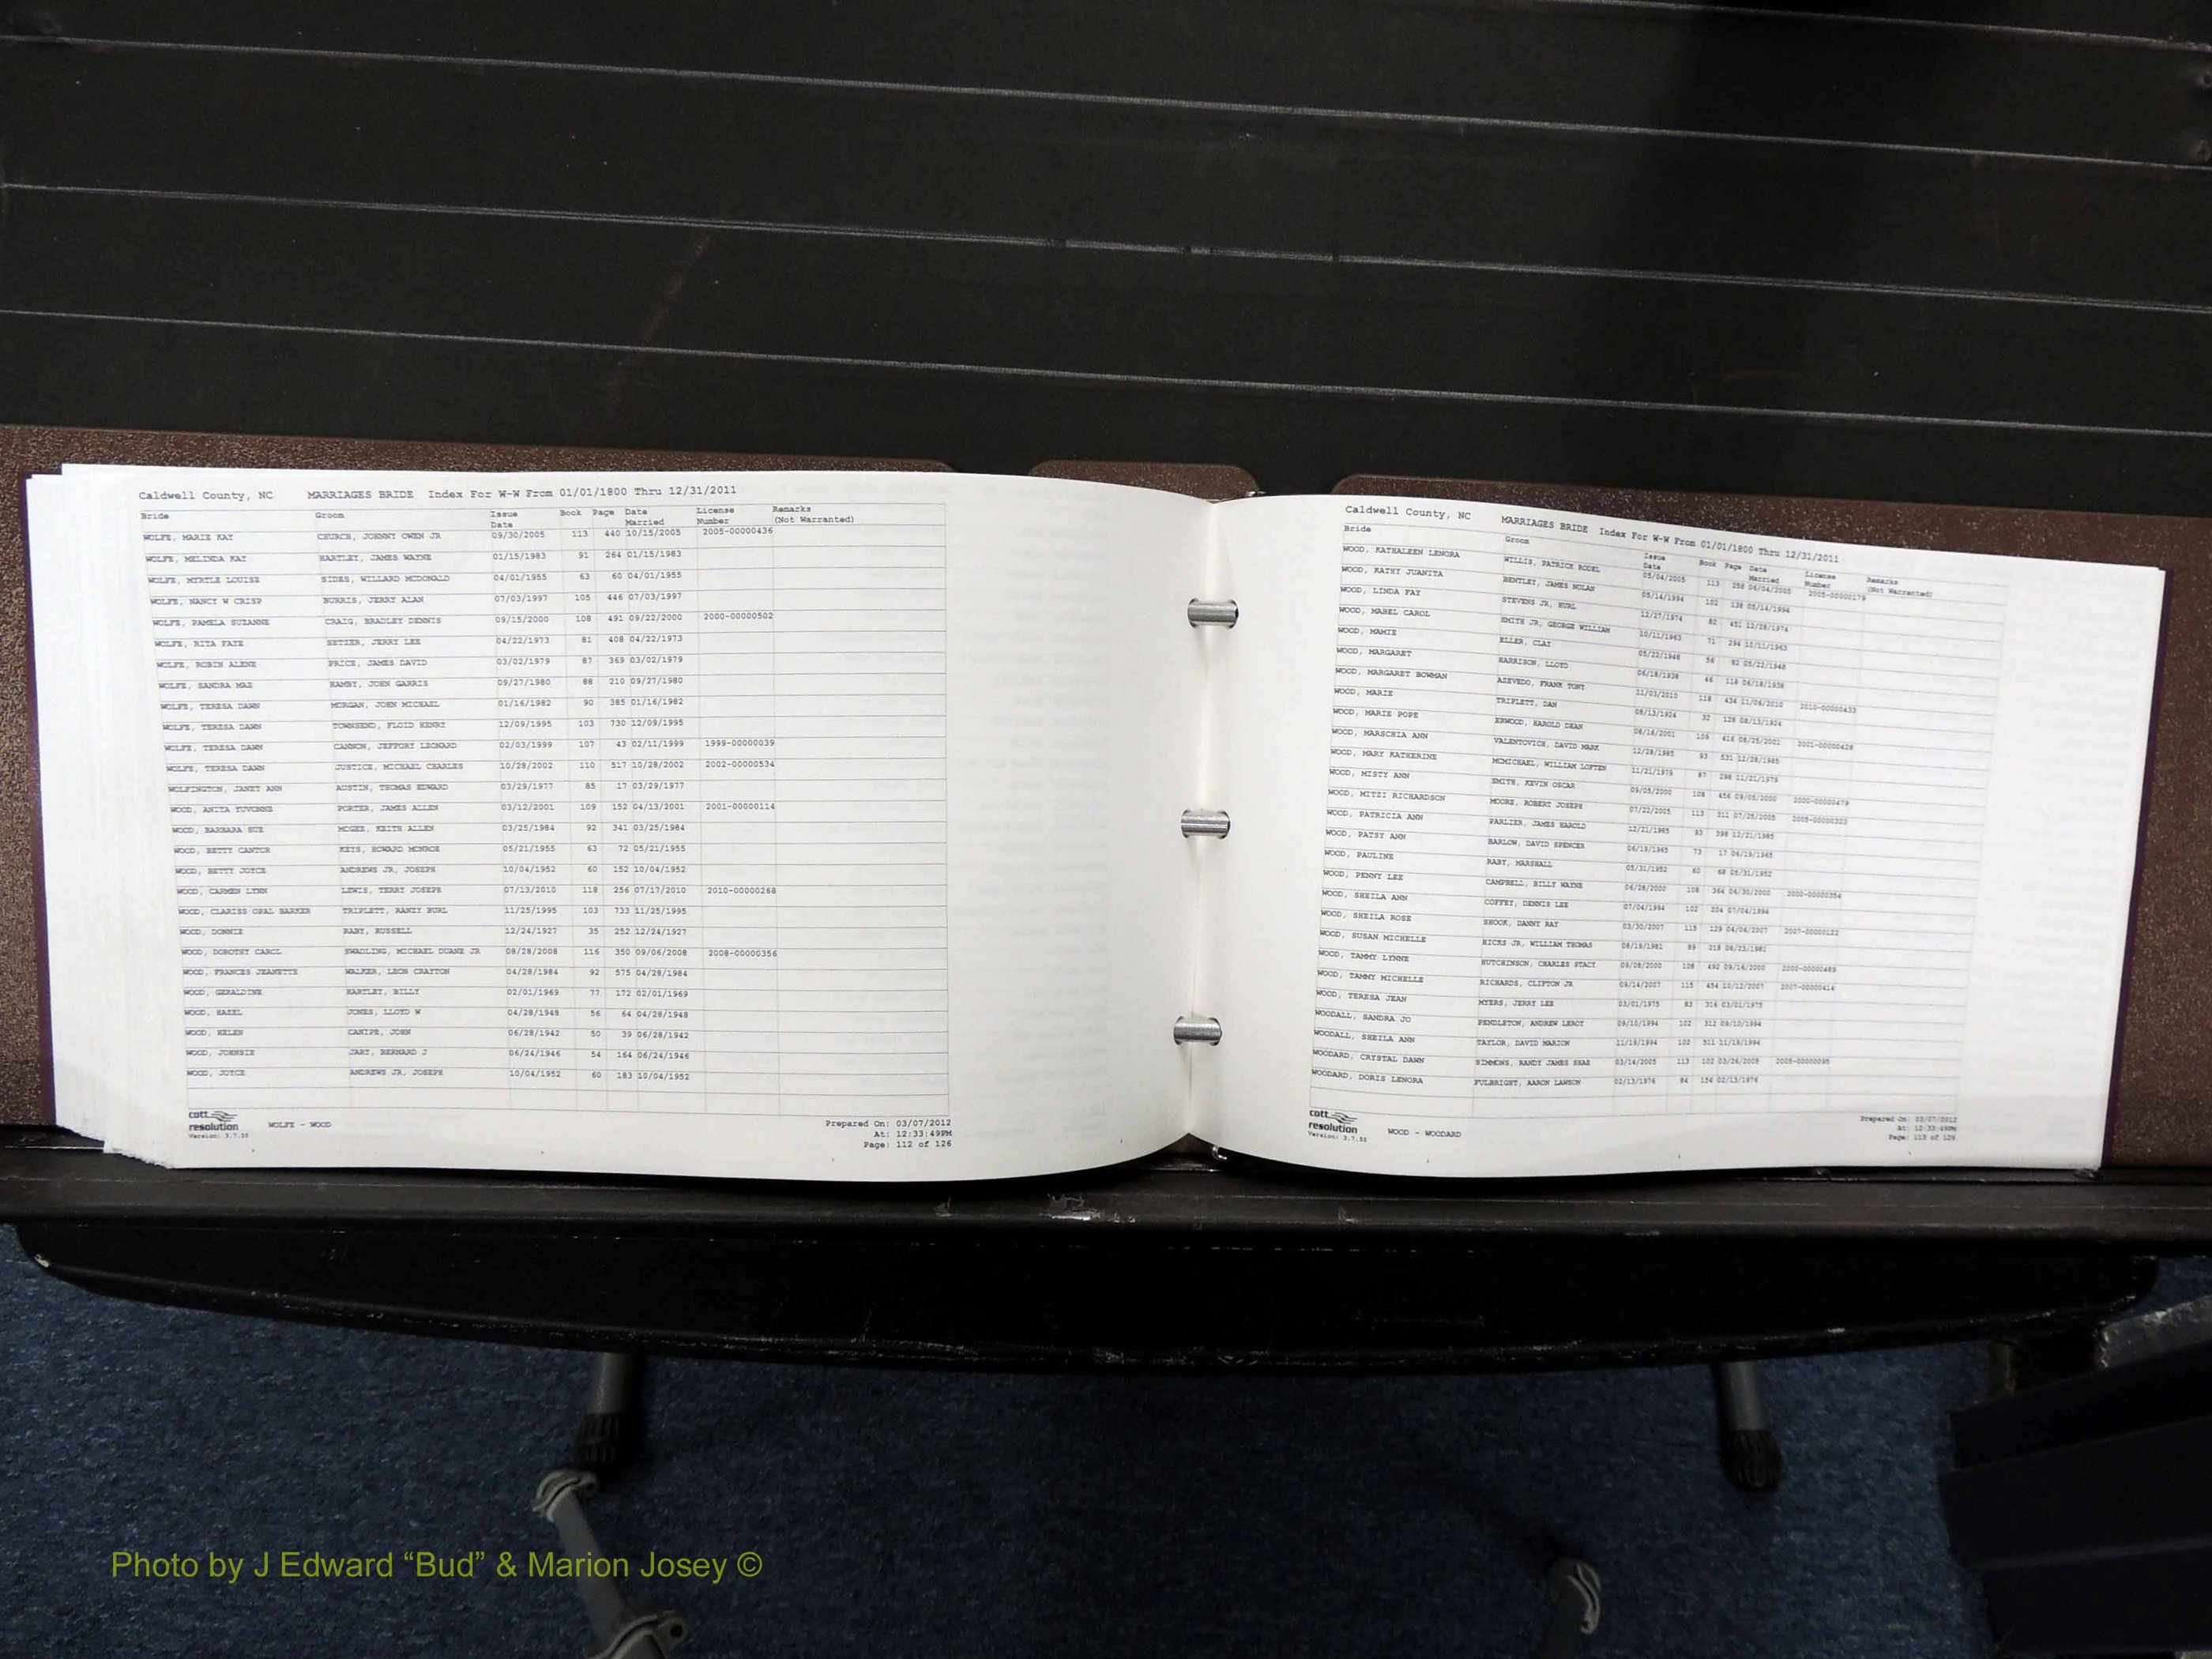 Caldwell County, NC MARRIAGES BRIDE Index For W-W From 01/01/1800 Thru 12/31/2011
Bride Groom Issue Date Book Page Date Married License Number Remarks (Not Warranted)
WOLFE, MARIE KAY CHURCH, JOHNNY OWEN JR 09/30/2005 113 440 10/15/2005 2005-00000436
WOLFE, MELINDA KAY HARTLEY, JAMES WAYNE 01/15/1983 91 264 01/15/1983
WOLFE, MYRTLE LOUISE SIDES, WILLARD MCDONALD 04/01/1955 63 60 04/01/1955
WOLFE, NANCY W CRISP BURRIS, JERRY ALAN 07/03/1997 105 446 07/03/1997
WOLFE, PAMELA SUZANNE CRAIG, BRADLEY DENNIS 09/15/2000 108 491 09/22/2000 2000-00000502
WOLFE, RITA FAYE SETZER, JERRY LEE 04/22/1973 81 408 04/22/1973
WOLFE, ROBIN ALENE PRICE, JAMES DAVID 03/02/1979 87 369 03/02/1979
WOLFE, SANDRA MAE HAMBY, JOHN GARRIS 09/27/1980 88 210 09/27/1980
WOLFE, TERESA DAWN MORGAN, JOHN MICHAEL 01/16/1982 90 385 01/16/1982
WOLFE, TERESA DAWN TOWNSEND, FLOYD HENRY 12/09/1995 103 730 12/09/1995
WOLFE, TERESA DAWN CANNON, JEFFORY LEONARD 02/03/1999 107 43 02/11/1999 1999-00000039
WOLFE, TERESA DAWN JUSTICE, MICHAEL CHARLES 10/28/2002 110 517 10/28/2002 2002-00000534
WOLFINGTON, JANET ANN AUSTIN, THOMAS EDWARD 03/29/1977 85 17 03/29/1977
WOOD, ANITA YUVONNE PORTER, JAMES ALLEN 03/12/2001 109 152 04/13/2001 2001-00000114
WOOD, BARBARA SUE MCGEE, KEITH ALLEN 03/25/1984 92 341 03/25/1984
WOOD, BETTY CANTOR KEYS, HOWARD MONROE 05/21/1955 63 72 05/21/1955
WOOD, BETTY JOYCE ANDREWS JR, JOSEPH 10/04/1952 60 152 10/04/1952
WOOD, CARMEN LYNN LEWIS, TERRY JOSEPH 07/13/2010 118 256 07/17/2010 2010-00000268
WOOD, CLARISS OPAL BARKER TRIPLETT, RANZY BURL 11/25/1995 103 733 11/25/1995
WOOD, DONNIE RABY, RUSSELL 12/24/1927 35 252 12/24/1927
WOOD, DOROTHY CAROL SWADLING, MICHAEL DUANE JR 08/28/2008 116 350 09/06/2008 2008-00000356
WOOD, FRANCES JEANETTE WALKER, LEON CRAYTON 04/28/1984 92 575 04/28/1984
WOOD, GERALDINE HARTLEY, BILLY 02/01/1969 77 172 02/01/1969
WOOD, HAZEL JONES, LLOYD W 04/28/1948 56 64 04/28/1948
WOOD, HELEN CANIPE, JOHN 06/28/1942 50 39 06/28/1942
WOOD, JOHNSIE JART, BERNARD J 06/24/1946 54 164 06/24/1946
WOOD, JOYCE ANDREWS JR, JOSEPH 10/04/1952 60 183 10/04/1952
cott resolution Version: 3.7.55 WOLFE - WOOD
Prepared On: 03/07/2012
At: 12:33:49PM
Page: 112 of 126
Caldwell County, NC MARRIAGES BRIDE Index For W-W From 01/01/1800 Thru 12/31/2011
Bride Groom Issue Date Book Page Date Married License Number Remarks (Not Warranted)
WOOD, KATHALEEN LENORA WILLIS, PATRICK RODEL 05/04/2005 113 258 06/04/2005 2005-00000179
WOOD, KATHY JUANITA BENTLEY, JAMES NOLAN 05/14/1994 102 138 05/14/1994
WOOD, LINDA FAY STEVENS JR, HURL 12/27/1974 82 451 12/28/1974
WOOD, MABEL CAROL SMITH JR, GEORGE WILLIAM 10/11/1963 71 294 10/11/1963
WOOD, MAMIE ELLER, CLAY 05/22/1948 56 82 05/22/1948
WOOD, MARGARET HARRISON, LLOYD 06/18/1938 46 118 06/18/1938
WOOD, MARGARET BOWMAN AZEVEDO, FRANK TONY 11/03/2010 118 434 11/06/2010 2010-00000433
WOOD, MARIE TRIPLETT, DAN 08/13/1924 32 128 08/13/1924
WOOD, MARIE POPE ERWOOD, HAROLD DEAN 08/16/2001 109 416 08/25/2001 2001-00000428
WOOD, MARSCHIA ANN VALENTOVICH, DAVID MARK 12/28/1985 93 531 12/28/1985
WOOD, MARY KATHERINE MCMICHAEL, WILLIAM LOFTEN 11/21/1979 87 298 11/21/1979
WOOD, MISTY ANN SMITH, KEVIN OSCAR 09/05/2000 108 456 09/05/2000 2000-00000479
WOOD, MITZI RICHARDSON MOORE, ROBERT JOSEPH 07/22/2005 113 311 07/25/2005
WOOD, PATRICIA ANN PARLIER, JAMES HAROLD 12/21/1985 93 398 12/21/1985
WOOD, PATSY ANN BARLOW, DAVID SPENCER 06/19/1965 73 17 06/19/1965
WOOD, PAULINE RABY, MARSHALL 05/31/1952 60 68 05/31/1952
WOOD, PENNY LEE CAMPBELL, BILLY WAYNE 06/28/2000 108 364 06/30/2000 2000-00000354
WOOD, SHEILA ANN COFFEY, DENNIS LEE 07/04/1994 102 204 07/04/1994
WOOD, SHEILA ROSE SHOOK, DANNY RAY 03/30/2007 115 129 04/06/2007 2007-00000122
WOOD, SUSAN MICHELLE HICKS JR, WILLIAM THOMAS 08/19/1981 89 218 08/23/1981
WOOD, TAMMY LYNNE HUTCHINSON, CHARLES STACY 09/08/2000 108 492 09/16/2000 2000-00000489
WOOD, TAMMY MICHELLE RICHARDS, CLIFTON JR 09/14/2007 115 454 10/12/2007 2007-00000416
WOOD, TERESA JEAN MYERS, JERRY LEE 03/01/1975 83 316 03/01/1975
WOODALL, SANDRA JO PENDLETON, ANDREW LEROY 09/10/1994 102 312 09/10/1994
WOODALL, SHEILA ANN TAYLOR, DAVID MARION 11/19/1994 102 511 11/19/1994
WOODARD, CRYSTAL DAWN SIMMONS, RANDY JAMES SHAE 03/14/2005 113 102 03/26/2005 2005-00000095
WOODARD, DORIS LENORA FULBRIGHT, AARON LAWSON 02/13/1976 84 154 02/13/1976
cott resolution Version: 3.7.55 WOOD - WOODARD
Prepared On: 03/07/2012
At: 12:33:49PM
Page: 113 of 126
Photo by J Edward “Bud” & Marion Josey ©